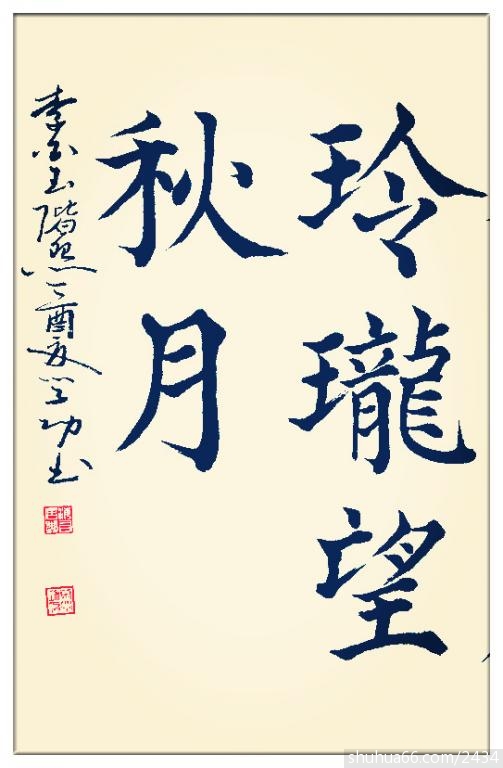 玲瓏望
秋月
李白玉階怨乙酉夏功书
shuhua66.com/2434